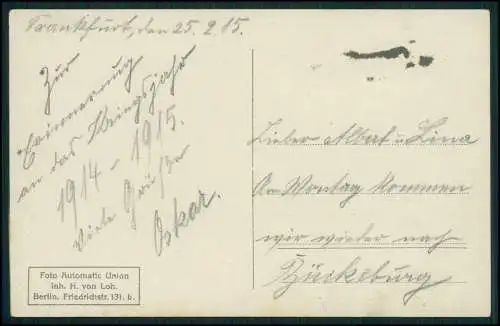 Frankfurt, den 25.2.15.
Zur
Erinnerung
an das Kriegsjahr
1914 - 1915.
Viele Grüße
Oskar.
Lieber Albert u Lina
Am Montag kommen
wir wieder nach
Bückeburg
Foto Automatic Union
Inh. H. von Loh.
Berlin, Friedrichstr. 131. b.